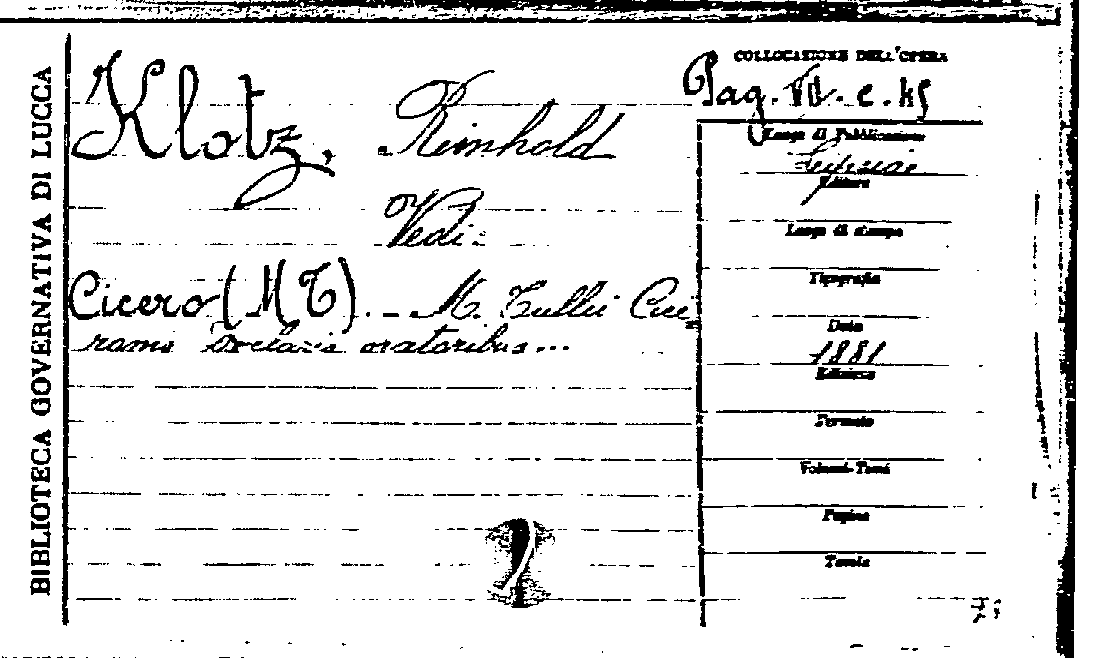 BIBLIOTECA GOVERNATIVA DI LUCCA
Klotz, Reinhold
Vedi:
Cicero (M T). _ M. Tullii Cice_
ronis De claris oratoribus...
COLLOCAZIONE DELL'OPERA
Pag. VII. c. 45
Luogo di Pubblicazione
Lipsiae
Editore
Luogo di stampa
Tipografia
Data
1881
Edizione
Formato
Volumi-Tomi
Pagine
Tavole